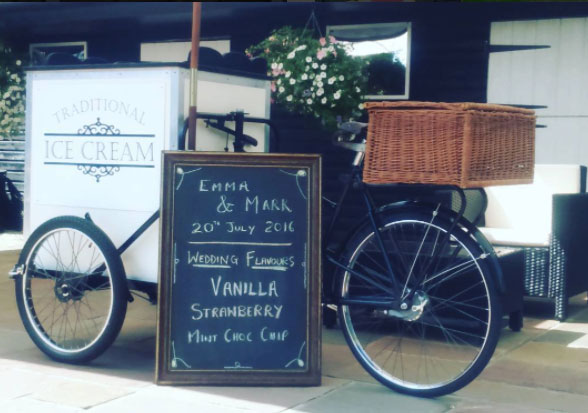 TRADITIONAL
ICE CREAM
EMMA
& MARK
20TH JULY 2016
WEDDING FLAVOURS
VANILLA
STRAWBERRY
MINT CHOC CHIP